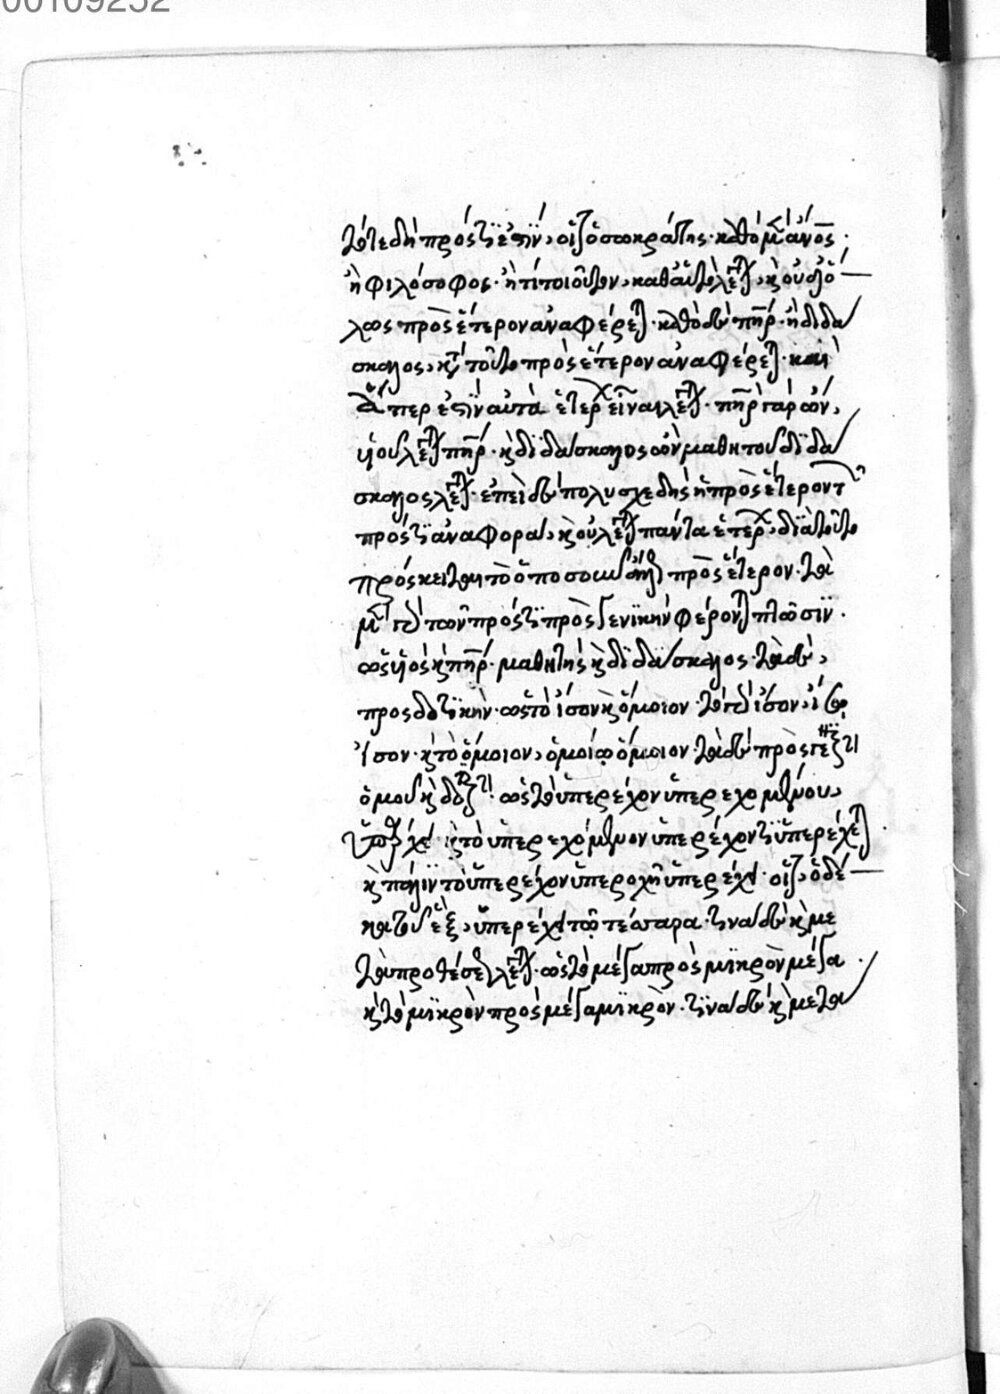 00109252
τότε δὴ πρός τι ἐστὶν, οἷον ὁ σωκράτης· καθὸ μὲν ἄνος·
ἢ φιλόσοφος· ἤ τι τοιοῦτον, καθ' αὑτὸ λέγεται, καὶ οὐχ ὅ
λως πρὸς ἕτερον ἀναφέρεται· καθὸ δὲ πὴρ· ἢ διδά
σκαλος, κατὰ τοῦτο πρὸς ἕτερον ἀναφέρεται· καὶ
ἅπερ ἐστὶν αὐτὰ ἑτέρων εἶναι λέγεται· πὴρ γὰρ ὢν,
υἱοῦ λέγεται πὴρ· καὶ διδάσκαλος ὢν μαθητοῦ διδά
σκαλος λέγεται· ἐπεὶ δὲ πολυσχεδὴς ἡ πρὸς ἕτερον τῶν
πρός τι ἀναφορὰ, καὶ οὐ λέγεται πάντα ἑτέρων, διὰ τοῦτο
πρόσκειται τὸ ὁπωσοῦν ἄλλως πρὸς ἕτερον· τὰ
μὲν γὰρ τῶν πρός τι πρὸς γενικὴν φέρονται πτῶσιν·
ὡς υἱὸς καὶ πὴρ· μαθητὴς καὶ διδάσκαλος· τὰ δὲ,
πρὸς δοτικὴν· ὡς τὸ ἴσον καὶ ὅμοιον· τὸ γὰρ ἴσον, ἴσῳ
ἴσον· καὶ τὸ ὅμοιον, ὁμοίῳ ὅμοιον· τὰ δὲ πρὸς γενικὴν
ὁμοῦ καὶ δοτικήν· ὡς τὸ ὑπερέχον ὑπερεχομένου,
ὑπερέχει· καὶ τὸ ὑπερεχόμενον ὑπερέχοντι ὑπερέχεται·
καὶ πάλιν τὸ ὑπερέχον ὑπεροχῇ ὑπερέχει· οἷον, ὁ δέ
κα τοῦ ἓξ, ὑπερέχει τῷ τέσσαρα· τινὰ δὲ καὶ με
τὰ προθέσεως λέγεται· ὡς τὸ μέγα πρὸς μικρὸν μέγα·
καὶ τὸ μικρὸν πρὸς μέγα μικρὸν· τινὰ δὲ καὶ μετὰ